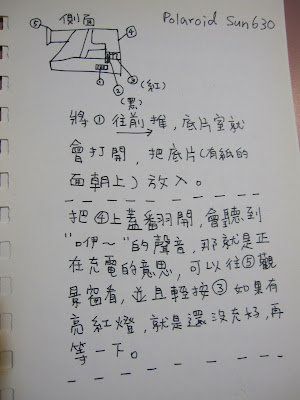 側面
Polaroid Sun630
⑤
④
③ (紅)
①
②
(黑)
將①往前推,底片室就
會打開,把底片(有紙的
面朝上)放入。
把④上蓋翻開,會聽到
"ㄍ咿~"的聲音,那就是正
在充電的意思,可以往⑤觀
景窗看,並且輕按③如果有
亮紅燈,就是還沒充好,再
等一下。